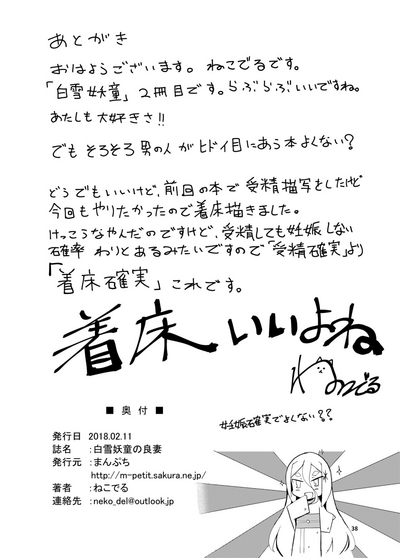 あとがき
おはようございます。ねこでるです。
「白雪妖童」2冊目です。らぶらぶいいですね。
あたしも大好きさ!!
でもそろそろ男の人がヒドイ目にあう本よくない?
どうでもいいけど、前回の本で受精描写をしたけど
今回もやりたかったので着床描きました。
けっこうなやんだのですけど、受精しても妊娠しない
確率わりとあるみたいですので「受精確実」より
「着床確実」これです。
着床いいよね
ねこでる
妊娠確実でよくない??
■ 奥付 ■
発行日 2018.02.11
誌名 :白雪妖童の良妻
発行元 :まんぷち
http://m-petit.sakura.ne.jp/
著者 :ねこでる
連絡先 :neko_del@outlook.jp
38